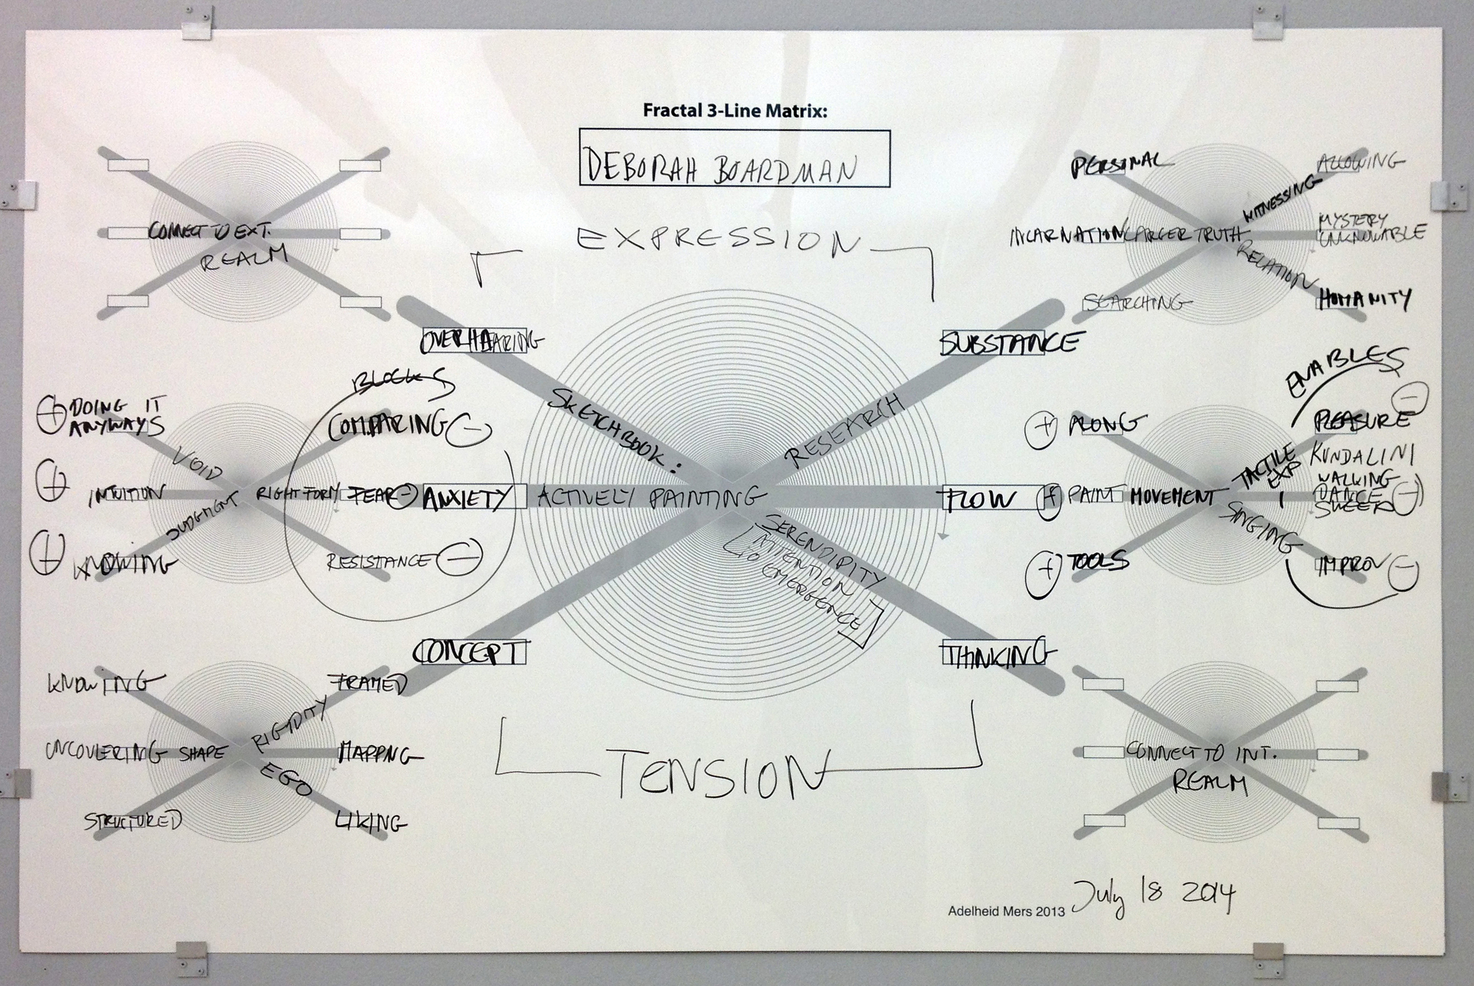 Fractal 3-Line Matrix:
DEBORAH BOARDMAN
EXPRESSION
CONNECT TO EXT.
REALM
PERSONAL
ALLOWING
WITNESSING
INCARNATION
LARGER TRUTH
MYSTERY
UNKNOWABLE
RELATION
SEARCHING
HUMANITY
OVERHEARING
SUBSTANCE
SKETCHBOOK:
RESEARCH
ACTIVELY PAINTING
ANXIETY
FLOW
SERENDIPITY
[ATTENTION
TO EMERGENCE]
CONCEPT
THINKING
BLOCKS
+ DOING IT
ANYWAYS
COMPARING -
VOID
+ INTUITION
RIGHT FORM
FEAR -
JUDGMENT
+ KNOWING
RESISTANCE -
ENABLES
+ ALONG
PLEASURE -
TACTILE
EXP
KUNDALINI
WALKING
DANCE
+ PAINT
MOVEMENT
SINGING
+ TOOLS
IMPROV -
KNOWING
FRAMED
RIGIDITY
UNCOVERING
SHAPE
MAPPING
EGO
STRUCTURED
LIKING
TENSION
CONNECT TO INT.
REALM
Adelheid Mers 2013
July 18 2014